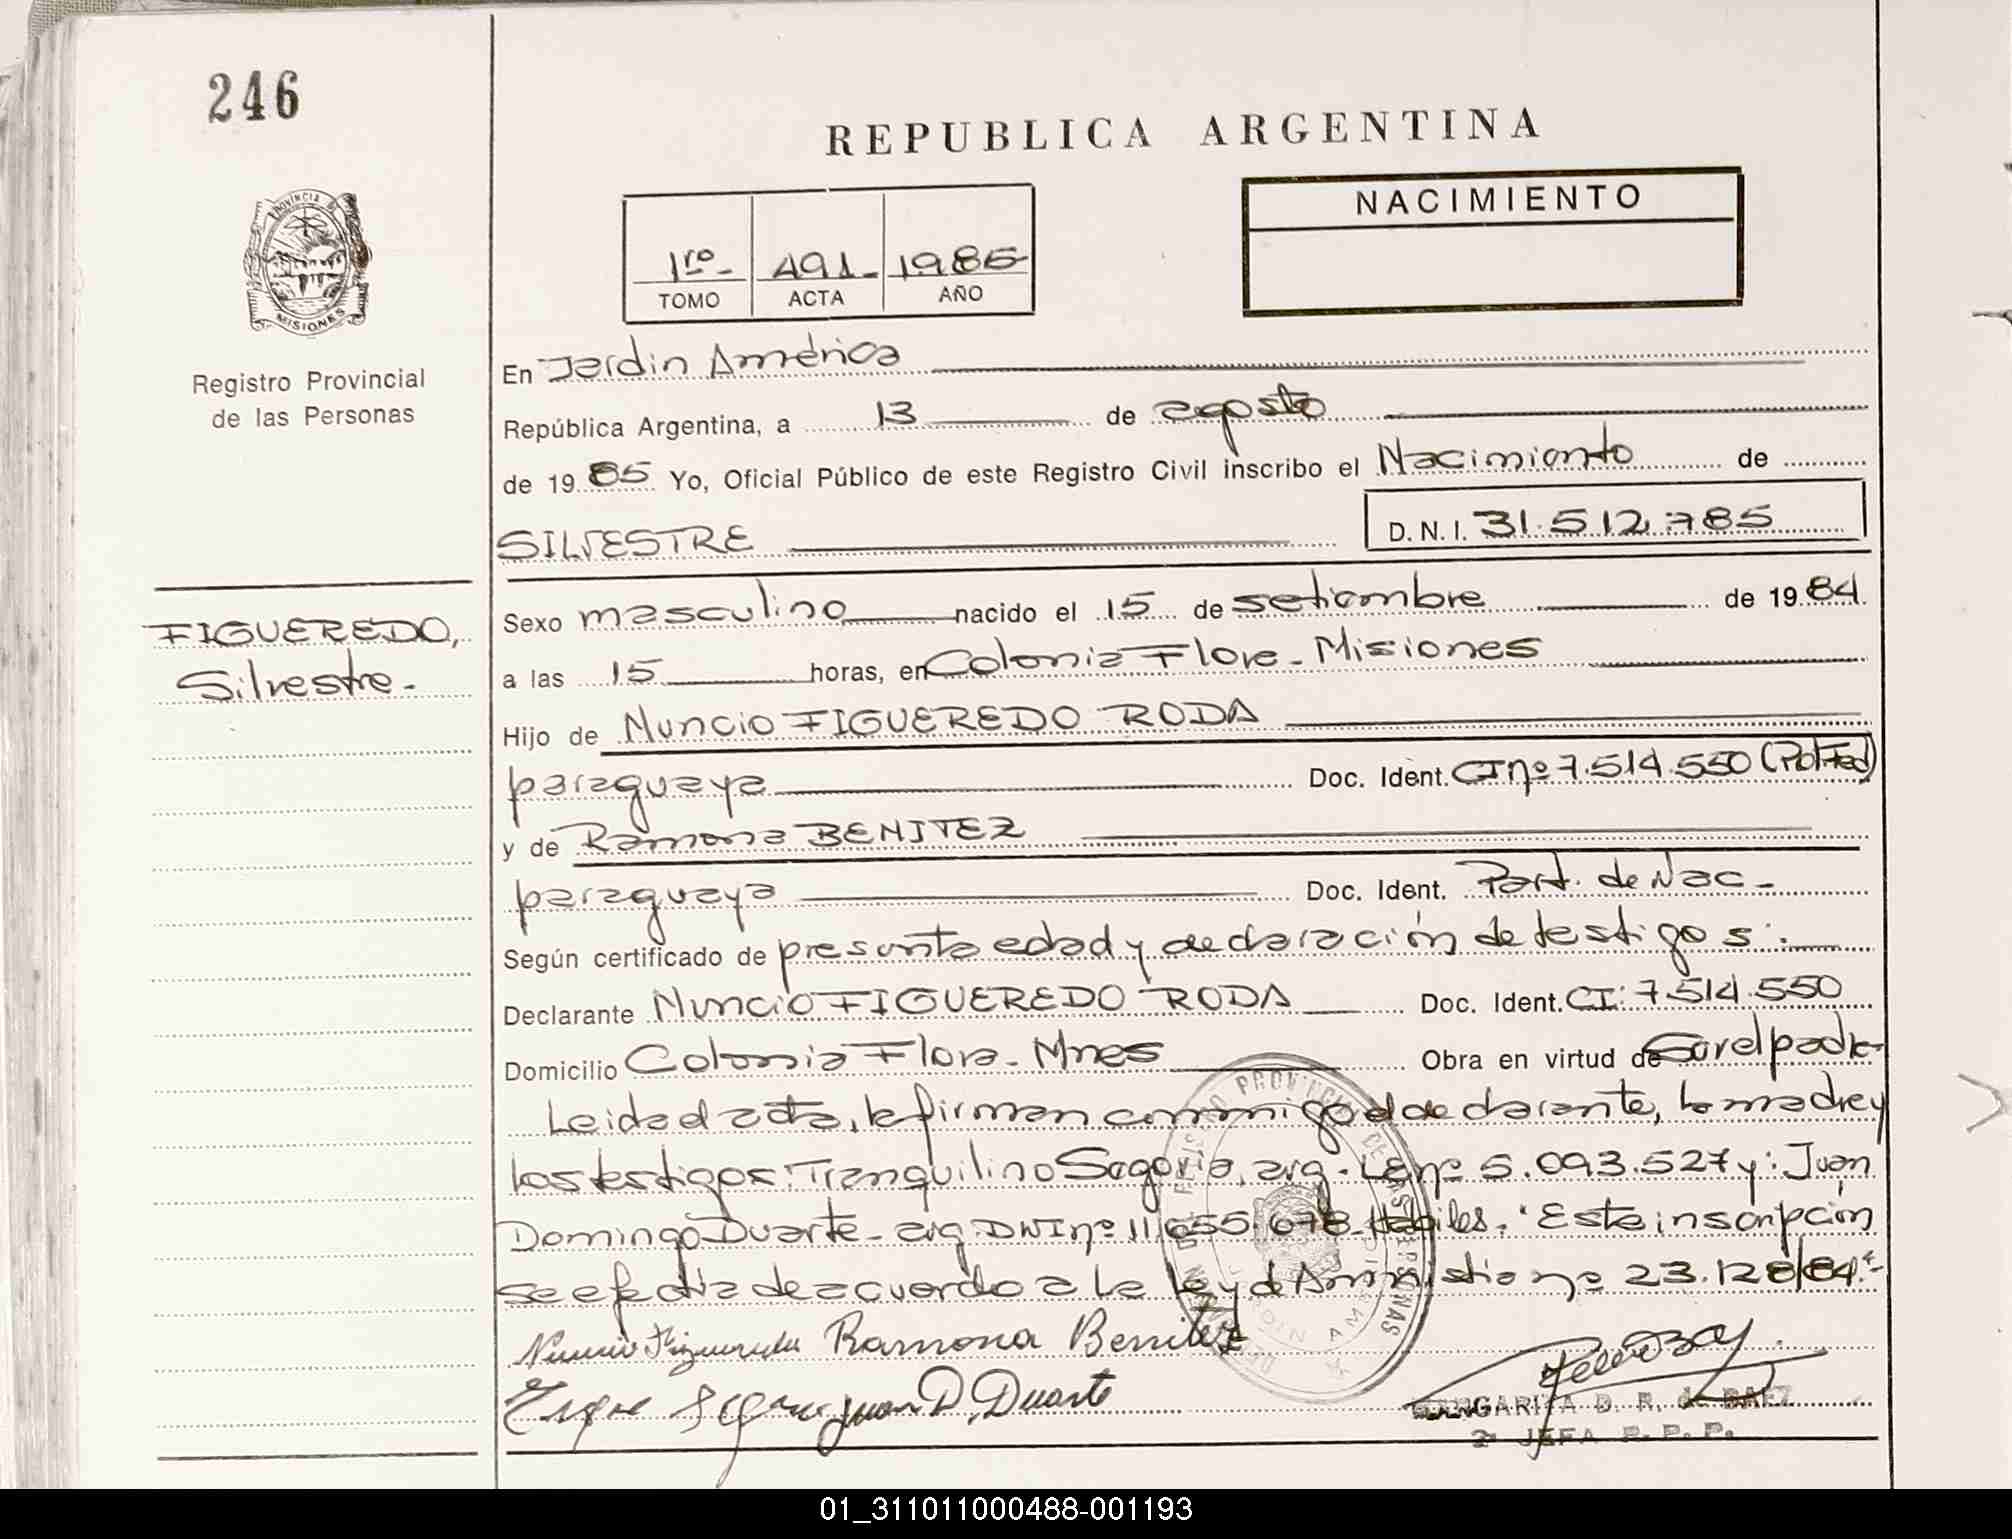 246
REPUBLICA ARGENTINA
NACIMIENTO
PROVINCIA DE
MISIONES
Registro Provincial
de las Personas
FIGUEREDO,
Silvestre.-
1ro- 491- 1985
TOMO ACTA AÑO
En Jardin América
República Argentina, a 13 de agosto
de 1985 Yo, Oficial Público de este Registro Civil inscribo el Nacimiento de
SILVESTRE D.N.I. 31.512.785
Sexo masculino nacido el 15 de setiembre de 1984
a las 15 horas, en Colonia Flora - Misiones
Hijo de Nuncio FIGUEREDO RODA
paraguaya Doc. Ident. CI nº 7.514.550 (Pol Fed)
y de Ramona BENITEZ
paraguaya Doc. Ident. Part. de Nac.-
Según certificado de presunta edad y declaración de testigos.
Declarante Nuncio FIGUEREDO RODA Doc. Ident. CI: 7.514.550
Domicilio Colonia Flora - Mnes Obra en virtud de Ser el padre-
Leida el acta, la firman conmigo el declarante, la madre y
los testigos: Tranquilino Segovia, arg. LE nº 5.093.527 y: Juan
Domingo Duarte - arg. DNI nº 11.655.678 - Habiles. "Esta inscripción
se efectúa de acuerdo a la Ley de Amnistia nº 23.128/84".-
Nuncio Figueredo Ramona Benitez
Juan D. Duarte
MARGARITA D. R. de BAEZ
2ª JEFA R. P. P.
01_311011000488-001193